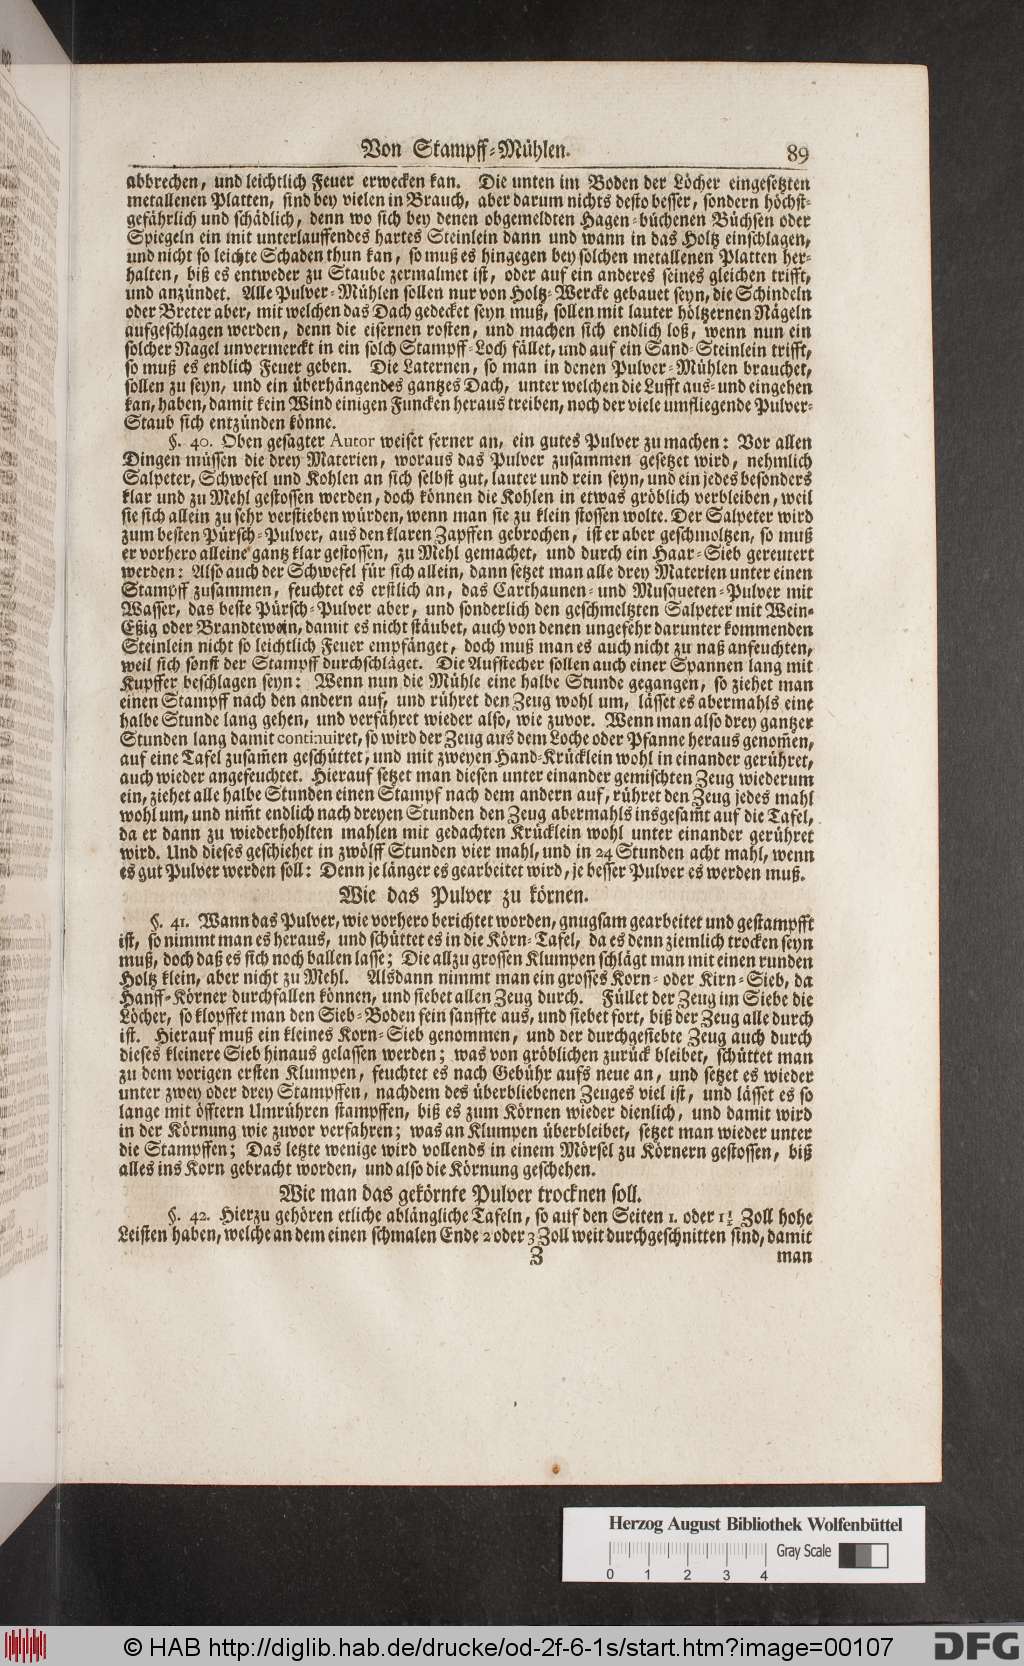 Von Stampff-Mühlen. 89
abbrechen, und leichtlich Feuer erwecken kan. Die unten im Boden der Löcher eingesetzten
metallenen Platten, sind bey vielen in Brauch, aber darum nichts desto besser, sondern höchst-
gefährlich und schädlich, denn wo sich bey denen obgemeldten Hagen-büchenen Büchsen oder
Spiegeln ein mit unterlauffendes hartes Steinlein dann und wann in das Holtz einschlagen,
und nicht so leichte Schaden thun kan, so muß es hingegen bey solchen metallenen Platten her-
halten, biß es entweder zu Staube zermalmet ist, oder auf ein anderes seines gleichen trifft,
und anzündet. Alle Pulver-Mühlen sollen nur von Holtz-Wercke gebauet seyn, die Schindeln
oder Breter aber, mit welchen das Dach gedecket seyn muß, sollen mit lauter höltzernen Nägeln
aufgeschlagen werden, denn die eisernen rosten, und machen sich endlich loß, wenn nun ein
solcher Nagel unvermerckt in ein solch Stampff-Loch fället, und auf ein Sand-Steinlein trifft,
so muß es endlich Feuer geben. Die Laternen, so man in denen Pulver-Mühlen brauchet,
sollen zu seyn, und ein überhängendes gantzes Dach, unter welchen die Lufft aus- und eingehen
kan, haben, damit kein Wind einigen Funcken heraus treiben, noch der viele umfliegende Pulver-
Staub sich entzünden könne.
§. 40. Oben gesagter Autor weiset ferner an, ein gutes Pulver zu machen: Vor allen
Dingen müssen die drey Materien, woraus das Pulver zusammen gesetzet wird, nehmlich
Salpeter, Schwefel und Kohlen an sich selbst gut, lauter und rein seyn, und ein jedes besonders
klar und zu Mehl gestossen werden, doch können die Kohlen in etwas gröblich verbleiben, weil
sie sich allein zu sehr verstieben würden, wenn man sie zu klein stossen wolte. Der Salpeter wird
zum besten Pürsch-Pulver, aus den klaren Zapffen gebrochen, ist er aber geschmoltzen, so muß
er vorhero alleine gantz klar gestossen, zu Mehl gemachet, und durch ein Haar-Sieb gereutert
werden: Also auch der Schwefel für sich allein, dann setzet man alle drey Materien unter einen
Stampff zusammen, feuchtet es erstlich an, das Carthaunen- und Musqueten-Pulver mit
Wasser, das beste Pürsch-Pulver aber, und sonderlich den geschmeltzten Salpeter mit Wein-
Eßig oder Brandtewein, damit es nicht stäubet, auch von denen ungefehr darunter kommenden
Steinlein nicht so leichtlich Feuer empfänget, doch muß man es auch nicht zu naß anfeuchten,
weil sich sonst der Stampff durchschläget. Die Aufstecher sollen auch einer Spannen lang mit
Kupffer beschlagen seyn: Wenn nun die Mühle eine halbe Stunde gegangen, so ziehet man
einen Stampff nach den andern auf, und rühret den Zeug wohl um, lässet es abermahls eine
halbe Stunde lang gehen, und verfähret wieder also, wie zuvor. Wenn man also drey gantzer
Stunden lang damit continuiret, so wird der Zeug aus dem Loche oder Pfanne heraus genom̃en,
auf eine Tafel zusam̃en geschüttet, und mit zweyen Hand-Krücklein wohl in einander gerühret,
auch wieder angefeuchtet. Hierauf setzet man diesen unter einander gemischten Zeug wiederum
ein, ziehet alle halbe Stunden einen Stampf nach dem andern auf, rühret den Zeug jedes mahl
wohl um, und nim̃t endlich nach dreyen Stunden den Zeug abermahls insgesam̃t auf die Tafel,
da er dann zu wiederhohlten mahlen mit gedachten Krücklein wohl unter einander gerühret
wird. Und dieses geschiehet in zwölff Stunden vier mahl, und in 24 Stunden acht mahl, wenn
es gut Pulver werden soll: Denn je länger es gearbeitet wird, je besser Pulver es werden muß.
Wie das Pulver zu körnen.
§. 41. Wann das Pulver, wie vorhero berichtet worden, gnugsam gearbeitet und gestampfft
ist, so nimmt man es heraus, und schüttet es in die Körn-Tafel, da es denn ziemlich trocken seyn
muß, doch daß es sich noch ballen lasse; Die allzu grossen Klumpen schlägt man mit einen runden
Holtz klein, aber nicht zu Mehl. Alsdann nimmt man ein grosses Korn- oder Kirn-Sieb, da
Hanff-Körner durchfallen können, und siebet allen Zeug durch. Füllet der Zeug im Siebe die
Löcher, so klopffet man den Sieb-Boden fein sanffte aus, und siebet fort, biß der Zeug alle durch
ist. Hierauf muß ein kleines Korn-Sieb genommen, und der durchgesiebte Zeug auch durch
dieses kleinere Sieb hinaus gelassen werden; was von gröblichen zurück bleibet, schüttet man
zu dem vorigen ersten Klumpen, feuchtet es nach Gebühr aufs neue an, und setzet es wieder
unter zwey oder drey Stampffen, nachdem des überbliebenen Zeuges viel ist, und lässet es so
lange mit öfftern Umrühren stampffen, biß es zum Körnen wieder dienlich, und damit wird
in der Körnung wie zuvor verfahren; was an Klumpen überbleibet, setzet man wieder unter
die Stampffen; Das letzte wenige wird vollends in einem Mörsel zu Körnern gestossen, biß
alles ins Korn gebracht worden, und also die Körnung geschehen.
Wie man das gekörnte Pulver trocknen soll.
§. 42. Hierzu gehören etliche ablängliche Tafeln, so auf den Seiten 1. oder 1½ Zoll hohe
Leisten haben, welche an dem einen schmalen Ende 2 oder 3 Zoll weit durchgeschnitten sind, damit
Z man
Herzog August Bibliothek Wolfenbüttel
Gray Scale
0 1 2 3 4
© HAB http://diglib.hab.de/drucke/od-2f-6-1s/start.htm?image=00107
DFG